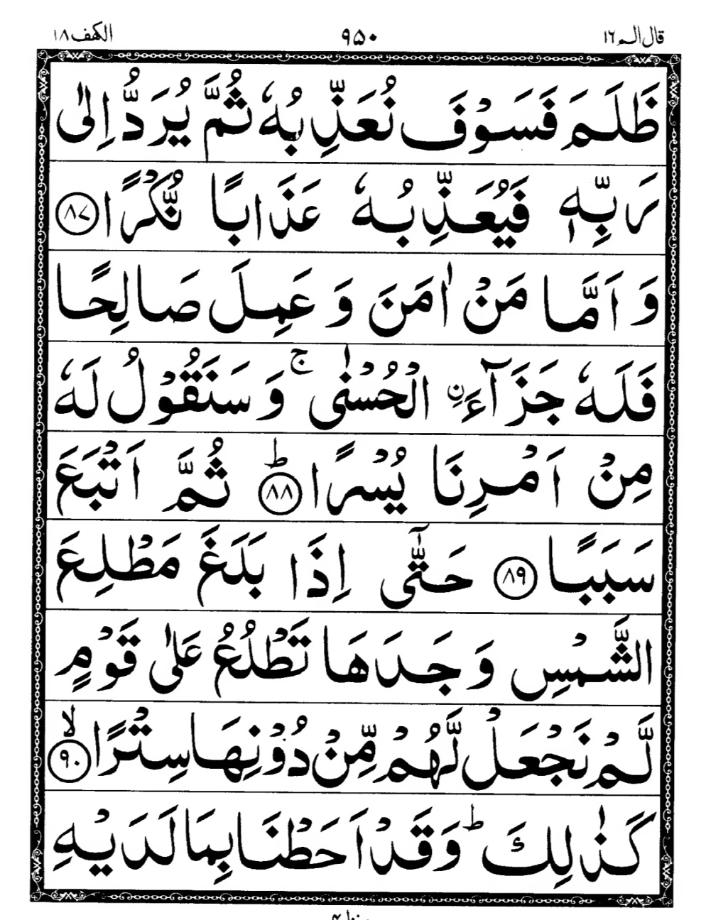 قال الم ١٦ ٩٥٠ الكهف ١٨
ظَلَمَ فَسَوْفَ نُعَذِّبُهٗ ثُمَّ يُرَدُّ اِلٰى
رَبِّهٖ فَيُعَذِّبُهٗ عَذَابًا نُّكْرًا ﴿٨٧﴾
وَ اَمَّا مَنْ اٰمَنَ وَ عَمِلَ صَالِحًا
فَلَهٗ جَزَآءَ ِۨ الْحُسْنٰى ۚ وَ سَنَقُوْلُ لَهٗ
مِنْ اَمْرِنَا يُسْرًا ؕ ﴿٨٨﴾ ثُمَّ اَتْبَعَ
سَبَبًا ﴿٨٩﴾ حَتّٰٓى اِذَا بَلَغَ مَطْلِعَ
الشَّمْسِ وَجَدَهَا تَطْلُعُ عَلٰى قَوْمٍ
لَّمْ نَجْعَلْ لَّهُمْ مِّنْ دُوْنِهَا سِتْرًا ۙ ﴿٩٠﴾
كَذٰلِكَ ؕ وَقَدْ اَحَطْنَا بِمَا لَدَيْهِ